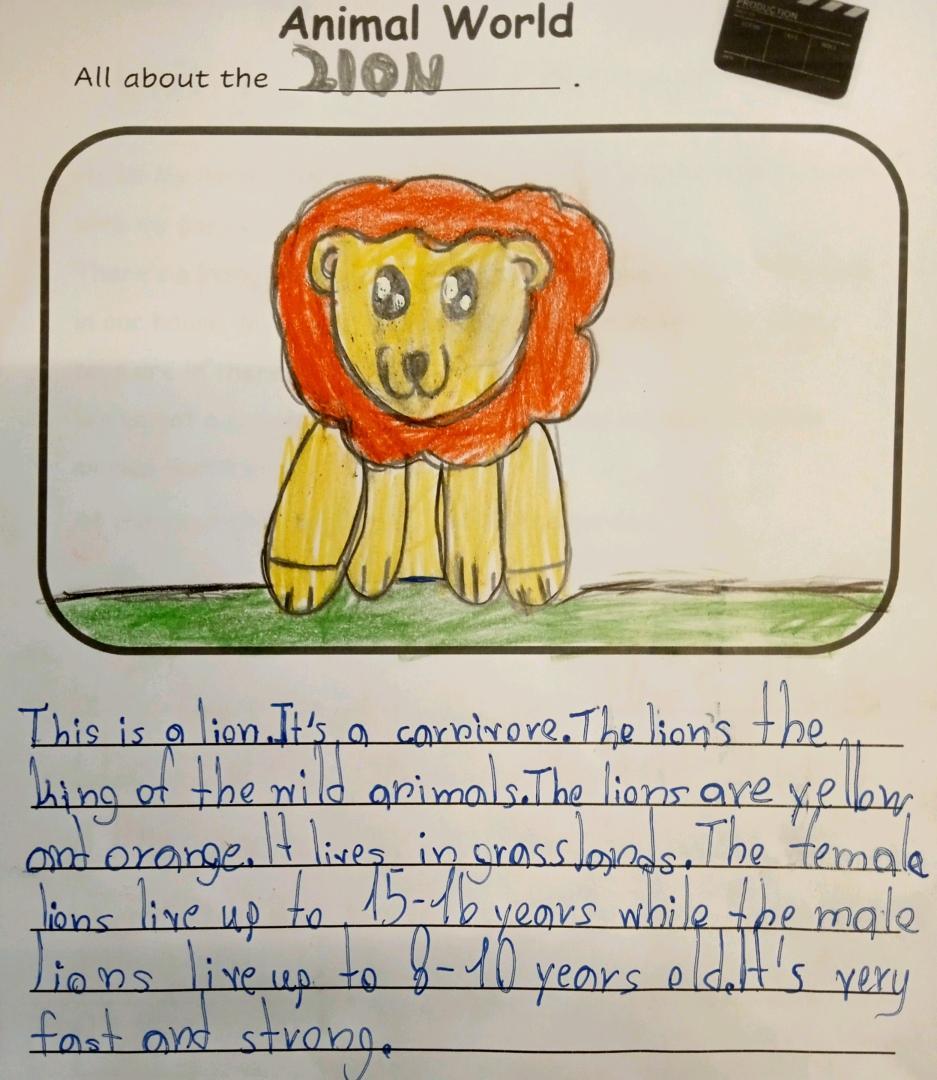 Animal World
PRODUCTION
All about the LION .
This is a lion.It's a carnivore.The lion's the
king of the wild animals.The lions are yellow
and orange. It lives in grasslands. The female
lions live up to 15-16 years while the male
lions live up to 8-10 years old.It's very
fast and strong.